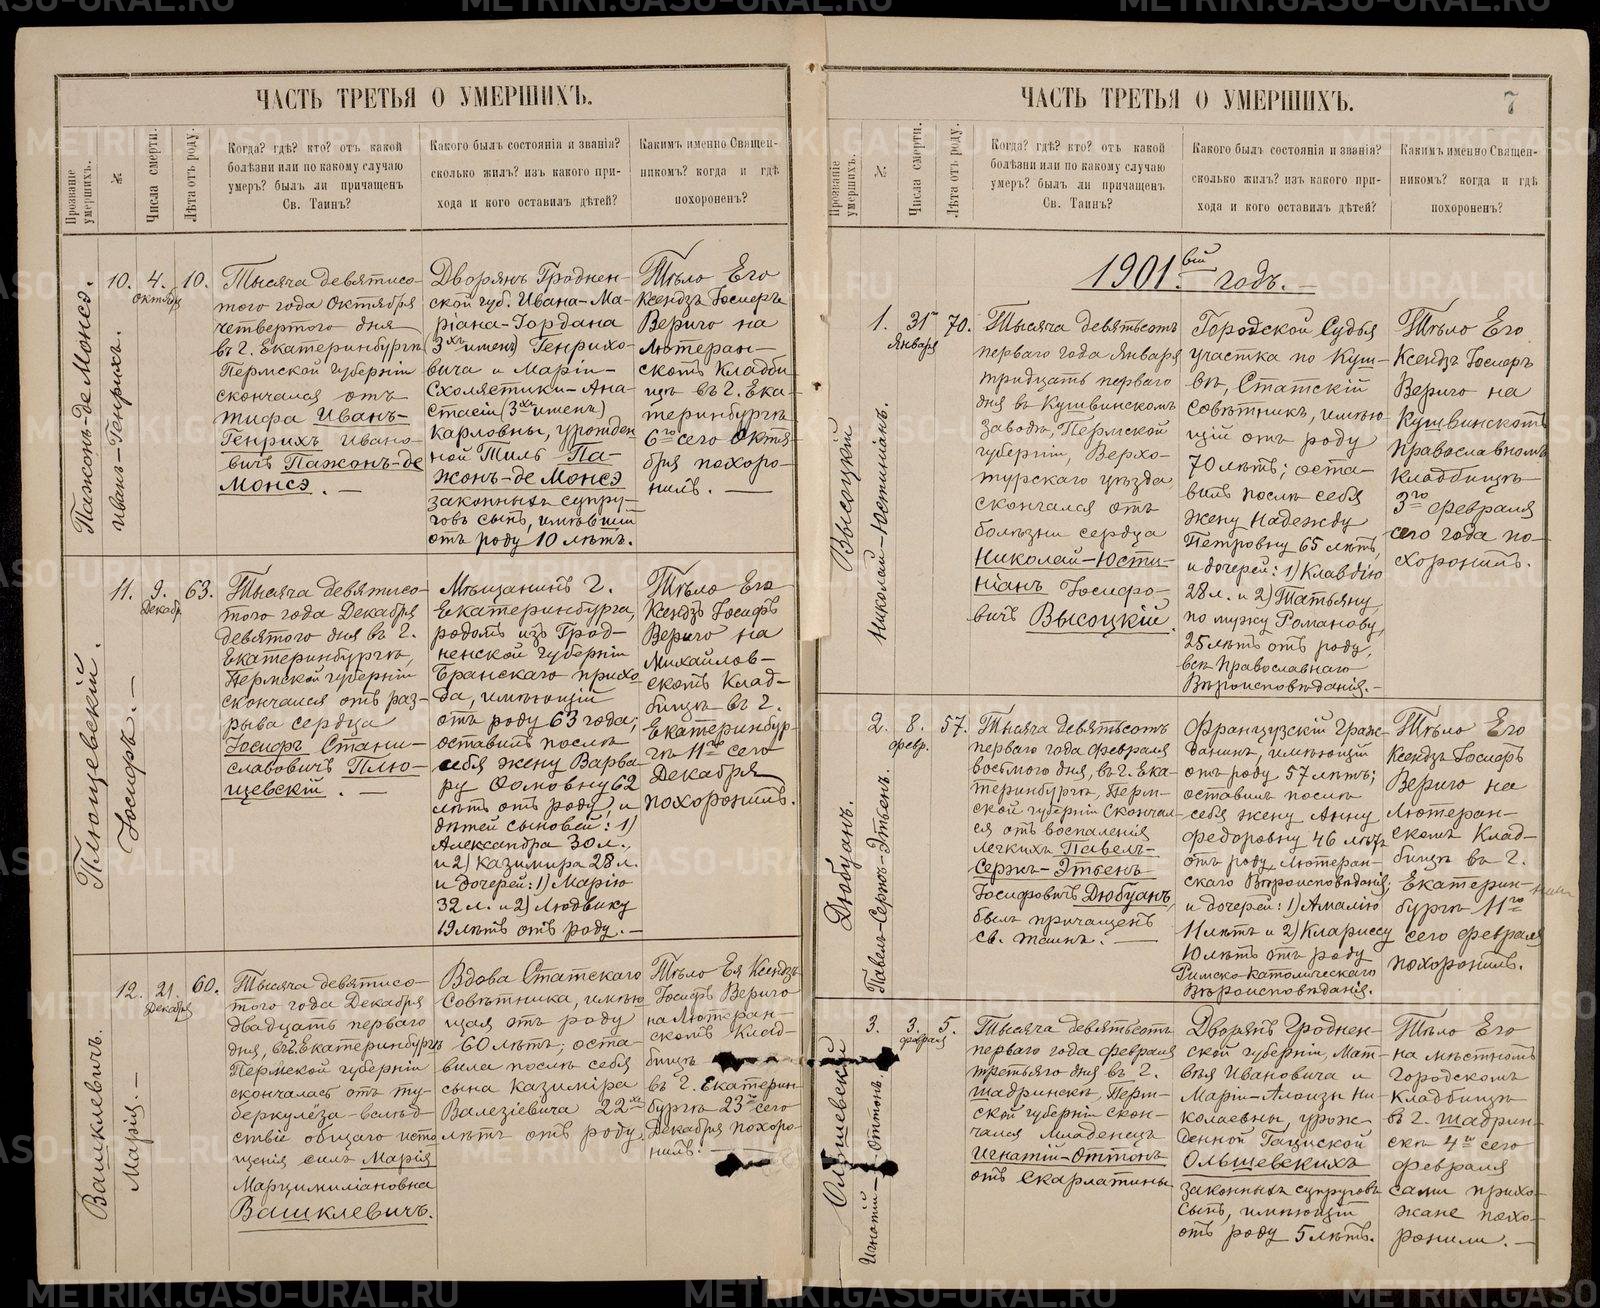 ЧАСТЬ ТРЕТЬЯ О УМЕРШИХЪ.
Прозваніе умершихъ.
№
Числа смерти.
Лѣта отъ роду.
Когда? гдѣ? кто? отъ какой
болѣзни или по какому случаю
умеръ? былъ ли причащенъ
Св. Таинъ?
Какого былъ состоянія и званія?
сколько жилъ? изъ какого при-
хода и кого оставилъ дѣтей?
Какимъ именно Священ-
никомъ? когда и гдѣ
похороненъ?
Пажонъ-де Монсэ.
Иванъ-Генрихъ.
10.
4.
Октября
10.
Тысяча девятисо-
того года Октября
четвертого дня
въ г. Екатеринбургѣ
Пермской губерніи
скончался отъ
тифа Иванъ-
Генрихъ Ивано-
вичъ Пажонъ-де
Монсэ. —
Дворянъ Гроднен-
ской губ. Ивана-Ма-
ріана-Гордана
(3хъ именъ) Генрихо-
вича и Маріи-
Схолястики-Ана-
стасіи (3хъ именъ)
Карловны, урожден
ной Тиль Па-
жонъ-де Монсэ
законныхъ супру-
говъ сынъ, имѣвшій
отъ роду 10 лѣтъ.
Тѣло Его
Ксендзъ Іосифъ
Вериго на
Лютеран-
скомъ Кладби-
щѣ въ г. Ека-
теринбургѣ
6го сего Октя-
бря похоро-
нилъ. —
Плющевскій.
Іосифъ. —
11.
9.
Декабр
63.
Тысяча девятисо-
того года Декабря
девятого дня въ г.
Екатеринбургѣ,
Пермской губерніи
скончался отъ раз-
рыва сердца
Іосифъ Стани-
славовичъ Плю-
щевскій. —
Мѣщанинъ г.
Екатеринбурга,
родомъ изъ Грод-
ненской губерніи
Бранскаго прихо-
да, имѣющій
отъ роду 63 года;
оставилъ послѣ
себя жену Варва
ру Фомовну 62
лѣтъ отъ роду, и
дѣтей сыновей: 1)
Александра 30 л.,
и 2) Казимира 28 л.
и дочерей: 1) Марію
32 л. и 2) Людвику
19 лѣтъ отъ роду. —
Тѣло Его
Ксендзъ Іосифъ
Вериго на
Михайлов-
скомъ Клад-
бищѣ въ г.
Екатеринбур-
гѣ 11го сего
Декабря
похоронилъ.
Вашклевичъ.
Марія. —
12.
21.
Декабря
60.
Тысяча девятисо-
того года Декабря
двадцать перваго
дня, въ г. Екатеринбургѣ
Пермской губерніи
скончалась отъ ту-
беркулёза вслѣд-
ствіе общаго исто
щенія силъ Марія
Марцимиліановна
Вашклевичъ.
Вдова Статскаго
Совѣтника, имѣю
щая отъ роду
60 лѣтъ; оста-
вила послѣ себя
сына Казиміра
Валезіевича 22хъ
лѣтъ отъ роду
Тѣло Ея Ксендзъ
Іосифъ Вериго
на Лютеран-
скомъ Клад-
бищѣ
въ г. Екатерин-
бургѣ 23го сего
Декабря похоро-
нилъ. —
ЧАСТЬ ТРЕТЬЯ О УМЕРШИХЪ.
7
Прозваніе умершихъ.
№
Числа смерти.
Лѣта отъ роду.
Когда? гдѣ? кто? отъ какой
болѣзни или по какому случаю
умеръ? былъ ли причащенъ
Св. Таинъ?
Какого былъ состоянія и званія?
сколько жилъ? изъ какого при-
хода и кого оставилъ дѣтей?
Какимъ именно Священ-
никомъ? когда и гдѣ
похороненъ?
1901.вый годъ. —
Высоцкій
Николай-Юстиніанъ.
1.
31го
Января
70.
Тысяча девятьсотъ
перваго года Января
тридцать перваго
дня въ Кушвинскомъ
заводѣ, Пермской
губерніи, Верхо-
турскаго уѣзда,
скончался отъ
болѣзни сердца
Николай-Юсти-
ніанъ Іосифо-
вичъ Высоцкій.
Городской Судья
участка по Куш-
вѣ, Статскій
Совѣтникъ, имѣю
щій отъ роду
70 лѣтъ; оста-
вилъ послѣ себя
жену Надежду
Петровну 65 лѣтъ,
и дочерей: 1) Клавдію
28 л. и 2) Татьяну,
по мужу Романову,
25 лѣтъ отъ роду,
всѣ Православнаго
Вѣроисповѣданія. —
Тѣло Его
Ксендзъ Іосифъ
Вериго на
Кушвинскомъ
Православномъ
Кладбищѣ
3го Февраля
сего года по-
хоронилъ.
Дюбуанъ.
Павелъ-Сержъ-Этьенъ.
2.
8.
Февр.
57.
Тысяча девятьсотъ
перваго года Февраля
восьмого дня, въ г. Ека-
теринбургѣ, Перм-
ской губерніи скончал-
ся отъ воспаленія
легкихъ Павелъ-
Сержъ-Этьенъ
Іосифовичъ Дюбуанъ,
былъ причащенъ
св. таинъ. —
Французскій Граж-
данинъ, имѣющій
отъ роду 57 лѣтъ;
оставилъ послѣ
себя жену Анну
Федоровну 46 лѣтъ
отъ роду, Лютеран-
скаго Вѣроисповѣданія,
и дочерей: 1) Амалію
11 лѣтъ и 2) Клариссу
10 лѣтъ отъ роду
Римско-католическаго
Вѣроисповѣданія.
Тѣло Его
Ксендзъ Іосифъ
Вериго на
Лютеран-
скомъ Клад-
бищѣ въ г.
Екатерин-
бургѣ 11го
сего Февраля
похоронилъ.
Ольшевскій
Игнатій-Оттонъ.
3.
3.
Февраля
5.
Тысяча девятьсотъ
перваго года Февраля
третьяго дня въ г.
Шадринскѣ, Перм-
ской губерніи скон-
чался младенецъ
Игнатій-Оттонъ
отъ скарлатины
Дворянъ Гроднен-
ской губерніи, Мат-
вѣя Ивановича и
Маріи-Алоизы Ни-
колаевны, урож-
денной Гациской
Ольшевскихъ
законныхъ супруговъ
сынъ, имѣющій
отъ роду 5 лѣтъ.
Тѣло Его
на мѣстномъ
Городскомъ
Кладбищѣ
въ г. Шадрин-
скѣ 4го сего
Февраля
сами прихо-
жане похо-
ронили. —
METRIKI.GASO-URAL.RU